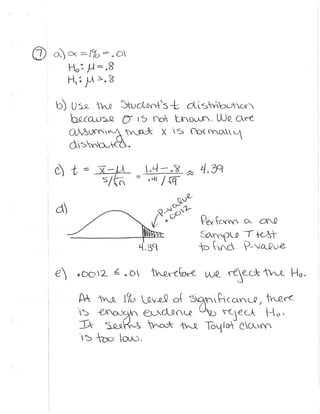 ⑦ a) α = 1% = .01
H₀: μ = .8
H₁: μ > .8
b) Use the Student's-t distribution
because σ is not known. We are
assuming that x is normally
distributed.
c) t = x̄-μ / s/√n = 1.4-.8 / .41/√9 ≈ 4.39
d)
P-value
.0012
4.39
Perform a one
sample T test
to find P-value
e) .0012 ≤ .01 therefore we reject the H₀.
At the 1% level of significance, there
is enough evidence to reject H₀.
It seems that the Toylot claim
is too low.